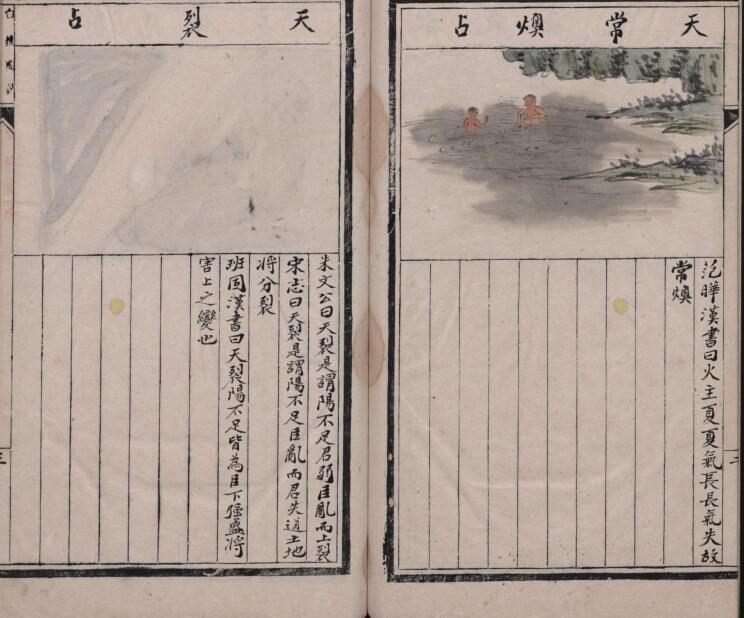 天常燠占
范曄漢書曰火主夏夏氣長長氣失故
常燠
天裂占
朱文公曰天裂是謂陽不足君弱臣亂而上裂
宋志曰天裂是謂陽不足臣亂而君失道土地
將分裂
班固漢書曰天裂陽不足皆為臣下强盛將
害上之變也